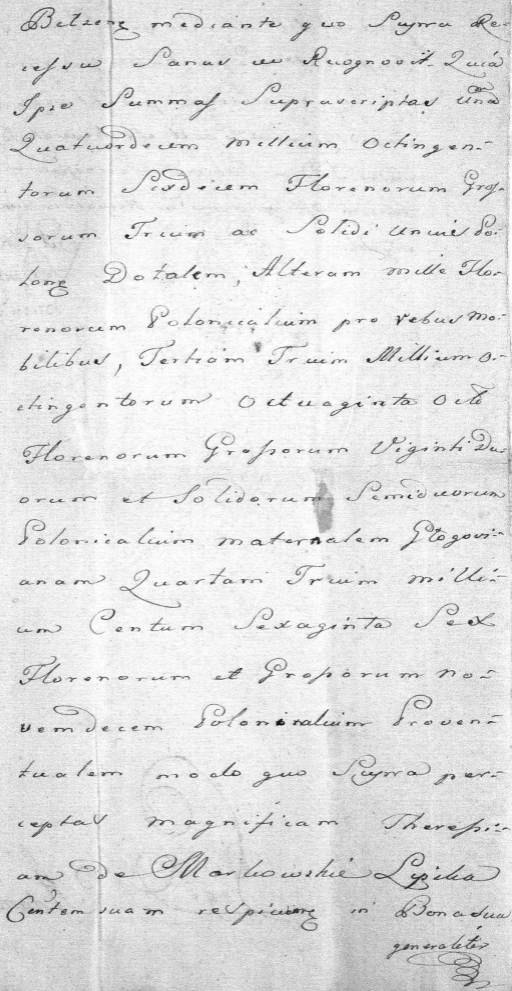 Belzens mediante quo Supra Re-
cessu Sanus ac Recognovit. Quia
Ipse Summas Suprascriptas Una
Quatuordecem millium Octingen-
torum Sexdecem Florenorum Gros-
sorum Trium ac Solidi unius Po-
long Dotalem, Alteram mille Flo-
renorum Polonicalium pro rebus Mo-
bilibus, Tertiam Trium Millium O-
ctingentorum Octuaginta Octo
Florenorum Grossorum Viginti Du-
orum et Solidorum Semiduorum
Polonicalium maternalem Głogovi-
anam Quartam Trium milli-
um Centum Sexaginta Sex
Florenorum et Grossorum No-
vemdecem Polonicalium Proven-
tualem modo quo Supra per-
ceptas magnificam Theressi-
am de Markowskie Lipska
Contem suam in Bona sua
generaliter